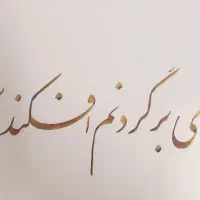 ی بر گردنم افکند